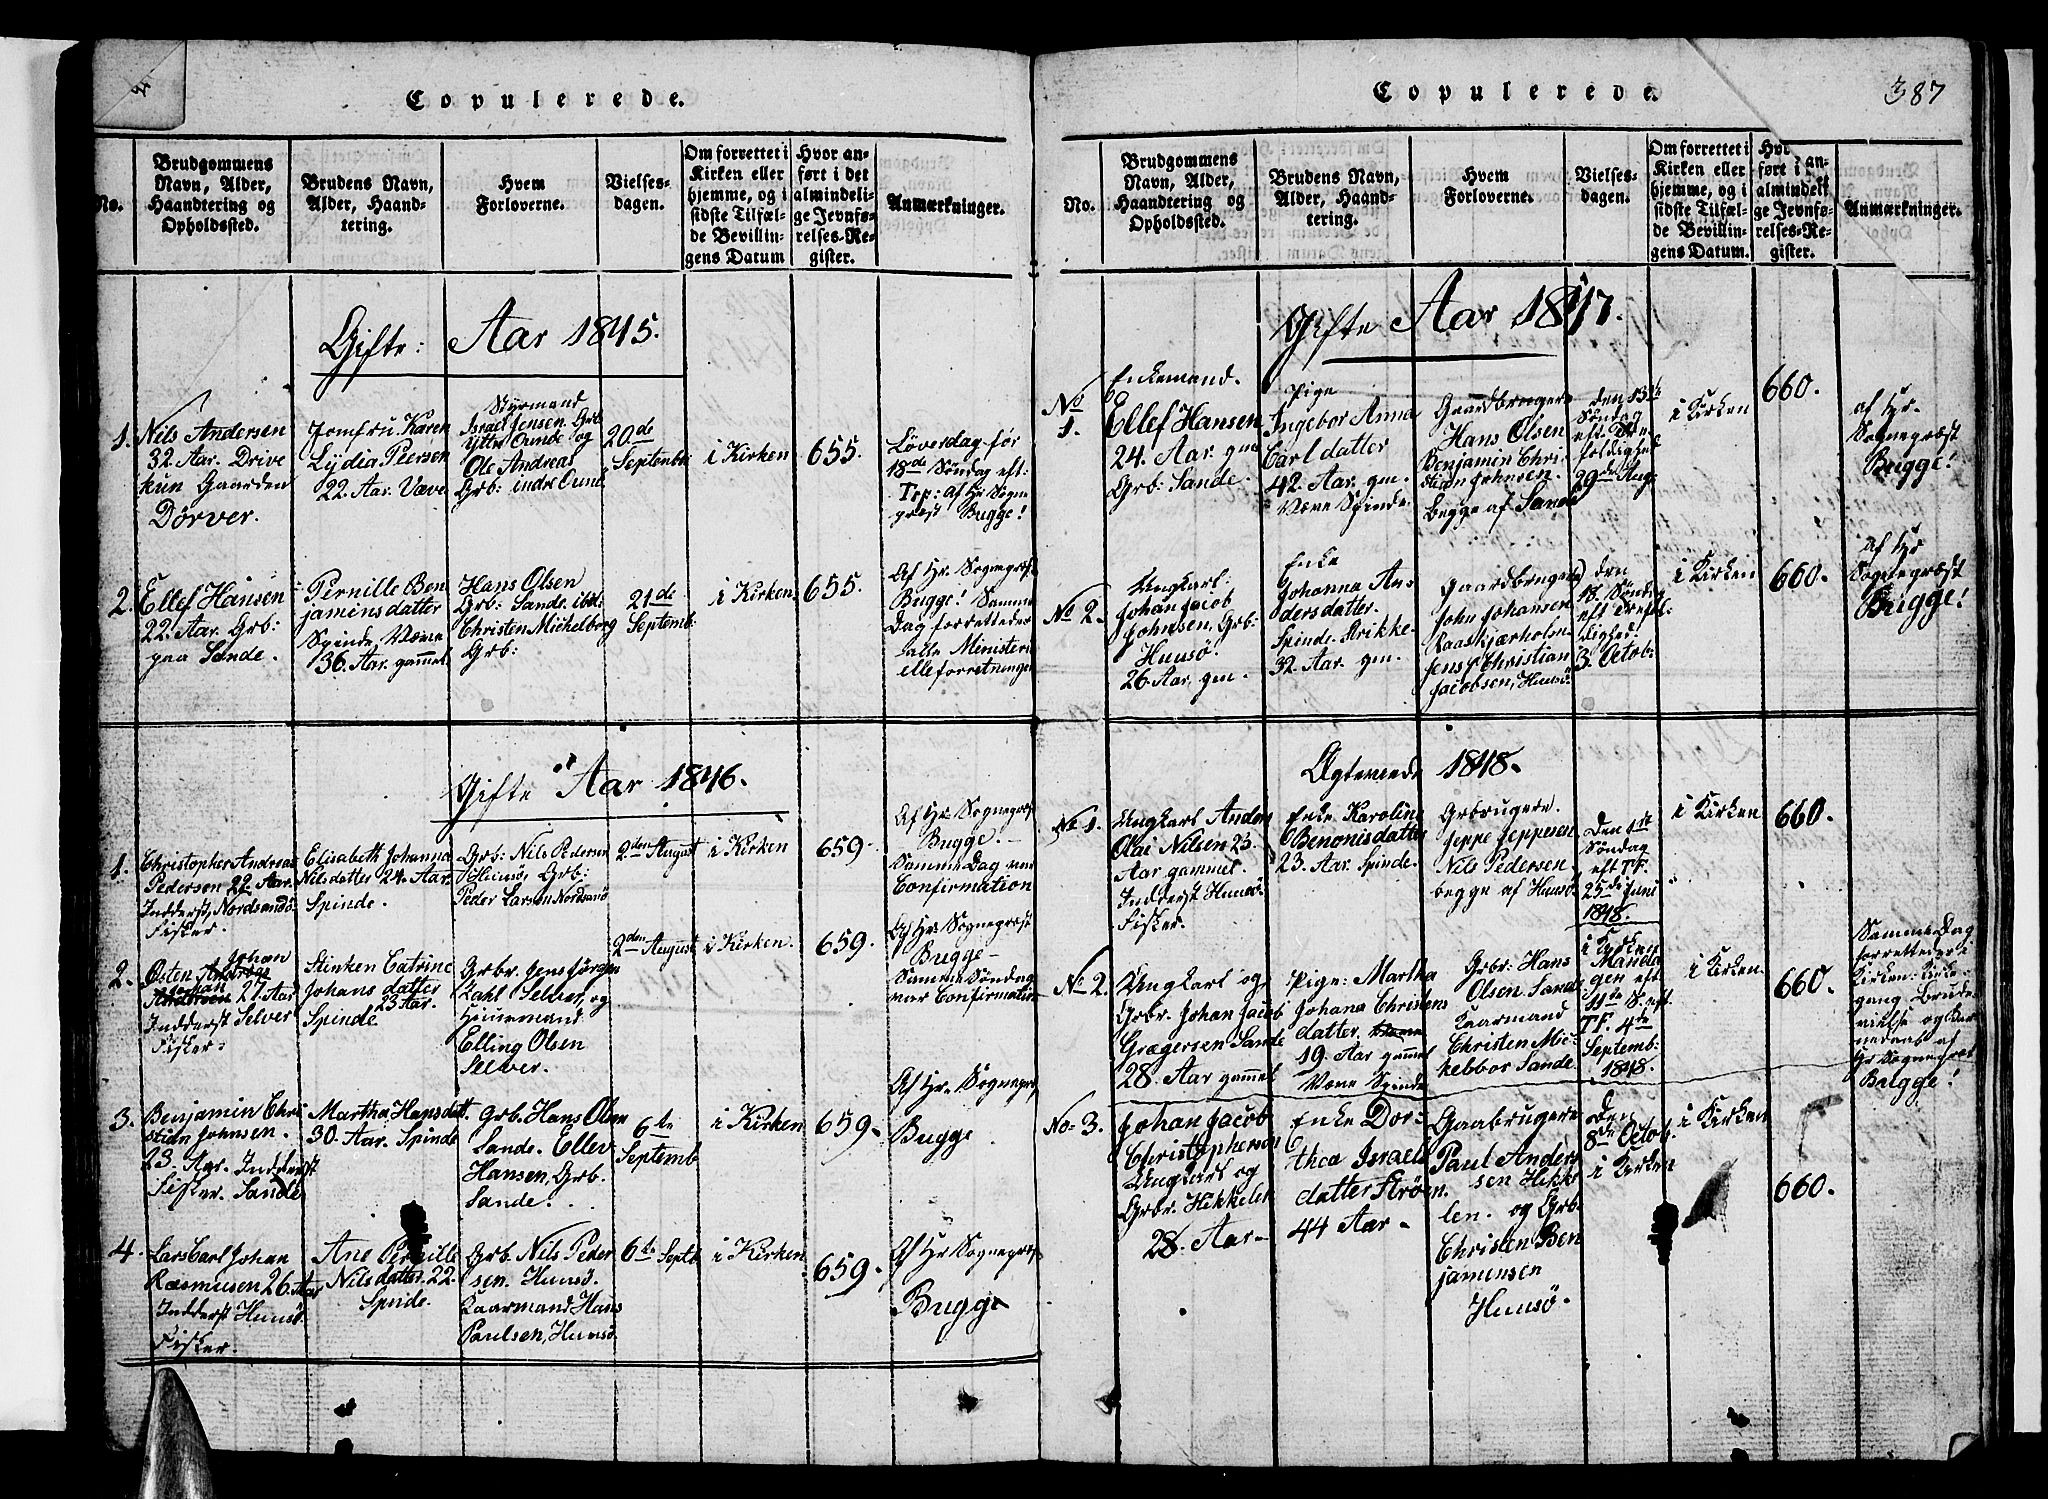 Copulerede.
No.
Brudgommens
Navn, Alder,
Haandtering og
Opholdssted.
Brudens Navn,
Alder, Haand-
tering.
Hvem
Forloverne.
Vielses-
dagen.
Om forrettet i
Kirken eller
hjemme, og i
sidste Tilfæl-
de Bevillin-
gens Datum
Hvor an-
ført i det
almindeli-
ge Jevnfø-
relses-Re-
gister.
Anmærkninger.
Gifte: Aar 1845.
1.
Nils Andersen
32. Aar. Drive
Gaarden
Dörver.
Jomfru Karen
Lÿdia Peersen
22. Aar. Væve
Styrmand
Israel Jensen. Grb
Ytter Qunde og
Ole Andreas
Grb: indre Qunde
20de
September
i Kirken
655.
Löverdag før
18de Söndag eft.
Trp: af Hr Sogne
præst Bugge!
2.
Ellef Hansen
22. Aar. Grb:
paa Sande.
Pernille Ben
jaminsdatter
Spinde, Væve
36. Aar. gammel
Hans Olsen
Grb: Sande. ibid.
Christen Michelborg
Grb:
21de
Septemb:
i Kirken
655.
Af Hr. Sognepræst
Bugge! Samme
Dag forrettedes
alle Ministeri
elleforretninger
Gifte Aar 1846.
1.
Christopher Andreas
Pedersen 22. Aar.
Inderst, Nordsandö
Fisker.
Elisabeth Johanna
Nilsdatter 24. Aar.
Spinde.
Grb: Nils Pedersen
Huusö, Grb:
Peder Larsen Nordsandö
2den August
i Kirken
659.
Af Hr. Sognepræst
Bugge.
Samme Dag var
Confirmation
2.
Osten
Johan
Andersen 27. Aar
Inderst Selver
Fisker.
Stinken Catrine
Johansdatter
23 Aar.
Spinde
Grb. Jens Jörgen
Zahl Selver, og
Huusmand
Elling Olsen
Selver.
2den August
i Kirken.
659.
Af Hr. Sognepræst
Bugge
Samme Söndag
var Confirmation
3.
Benjamin Chri
stian Johnsen.
23. Aar. Inderst
Fisker. Sande
Martha Hansdatt.
30. Aar. Spinde
Grb. Hans Olsen
Sande. Ellev
Hansen, Grb.
Sande.
6te
Septemb
i Kirken
659.
Af Hr. Sognepræst
Bugge
4.
Lars Carl Johan
Rasmusen 26. Aar
Inderst Huusö.
Fisker.
Ane Pernille
Nilsdatter. 22.
Spinde.
Grb. Nils Peder
sen. Huusö.
Kaarmand Hans
Paulsen, Huusö
6te Septb
i Kirken
659.
Af Hr Sognepræst
Bugge
Copulerede.
387
No.
Brudgommens
Navn, Alder,
Haandtering og
Opholdssted.
Brudens Navn,
Alder, Haand-
tering.
Hvem
Forloverne.
Vielses-
dagen.
Om forrettet i
Kirken eller
hjemme, og i
sidste Tilfæl-
de Bevillin-
gens Datum.
ført i an-
almindeli
ge Jevnfø-
relses-Re-
gister.
Anmærkninger.
Gifte Aar 1847.
No
1.
Enkemand.
Ellef Hansen
24. Aar. gm
Grb: Sande.
Pige
Ingebor Anna
Carldatter
42. Aar. gm.
Væve Spinde.
Gaardbrugere
Hans Olsen
Benjamin Chri-
stian Johnsen.
begge af Sande
den 13de
Söndag
eft. Tre-
foldighed
29de Aug.
i Kirken
660.
af Hr.
Sognepræst
Bugge!
No 2.
Ungkarl:
Johan Jacob
Johnsen, Grb:
Huusö
26 Aar. gm.
Enke
Johanna An-
dersdatter.
Spinde. Strikke.
32. Aar. gm.
Gaardbrugere
John Johansen
Raaskjærholm
Jens Christian
Jacobsen, Huusö
den
18. Söndag
eft Trefol-
dighed.
3. Octob:
i Kirken
660.
af Hr
Sognepræst
Bugge!
Ægteviede 1848.
No 1.
Ungkarl Anders
Olai Nilsen 23.
Aar gammel.
Inderst Huusö
Fisker.
Enke Karoline
Benonisdatter
23. Aar. Spinde.
Grbrugere.
Jeppe Jeppesen
Nils Pedersen.
begge af Huusö
Den 1ste
Söndag
eft TF.
25de Juni
1848.
i Kirken
660.
No 2.
Ungkarl og
Grbr. Johan Jacob
Grægersen Sande
28. Aar gammel
Pige. Martha
Johana Christens
datter,
19. Aar gammel
Væve Spinde
Grbr: Hans
Olsen Sande
Kaarmand
Christen Mic-
kebbor Sande.
i Kirken
Manda
gen eft
11te S. eft
TF. 4te
Septemb:
1848.
i Kirken.
660.
Samme Dag
forrettedes i
Kirken: Kirke-
gang Brude-
vielse og
af
Hr Sognepræst
Bugge!
No 3.
Johan Jacob
Christophersen
Ungkarl og
Grbr. Hikkelen
28. Aar
Enke Dor-
thea Israels
datter Strøm.
44 Aar
Gaabrugere
Paul Anders
sen Hikke
len. og Grb.
Christen Ben
jamensen
Huusö.
Den
8de Octob.
i Kirken
i Kirken
660.